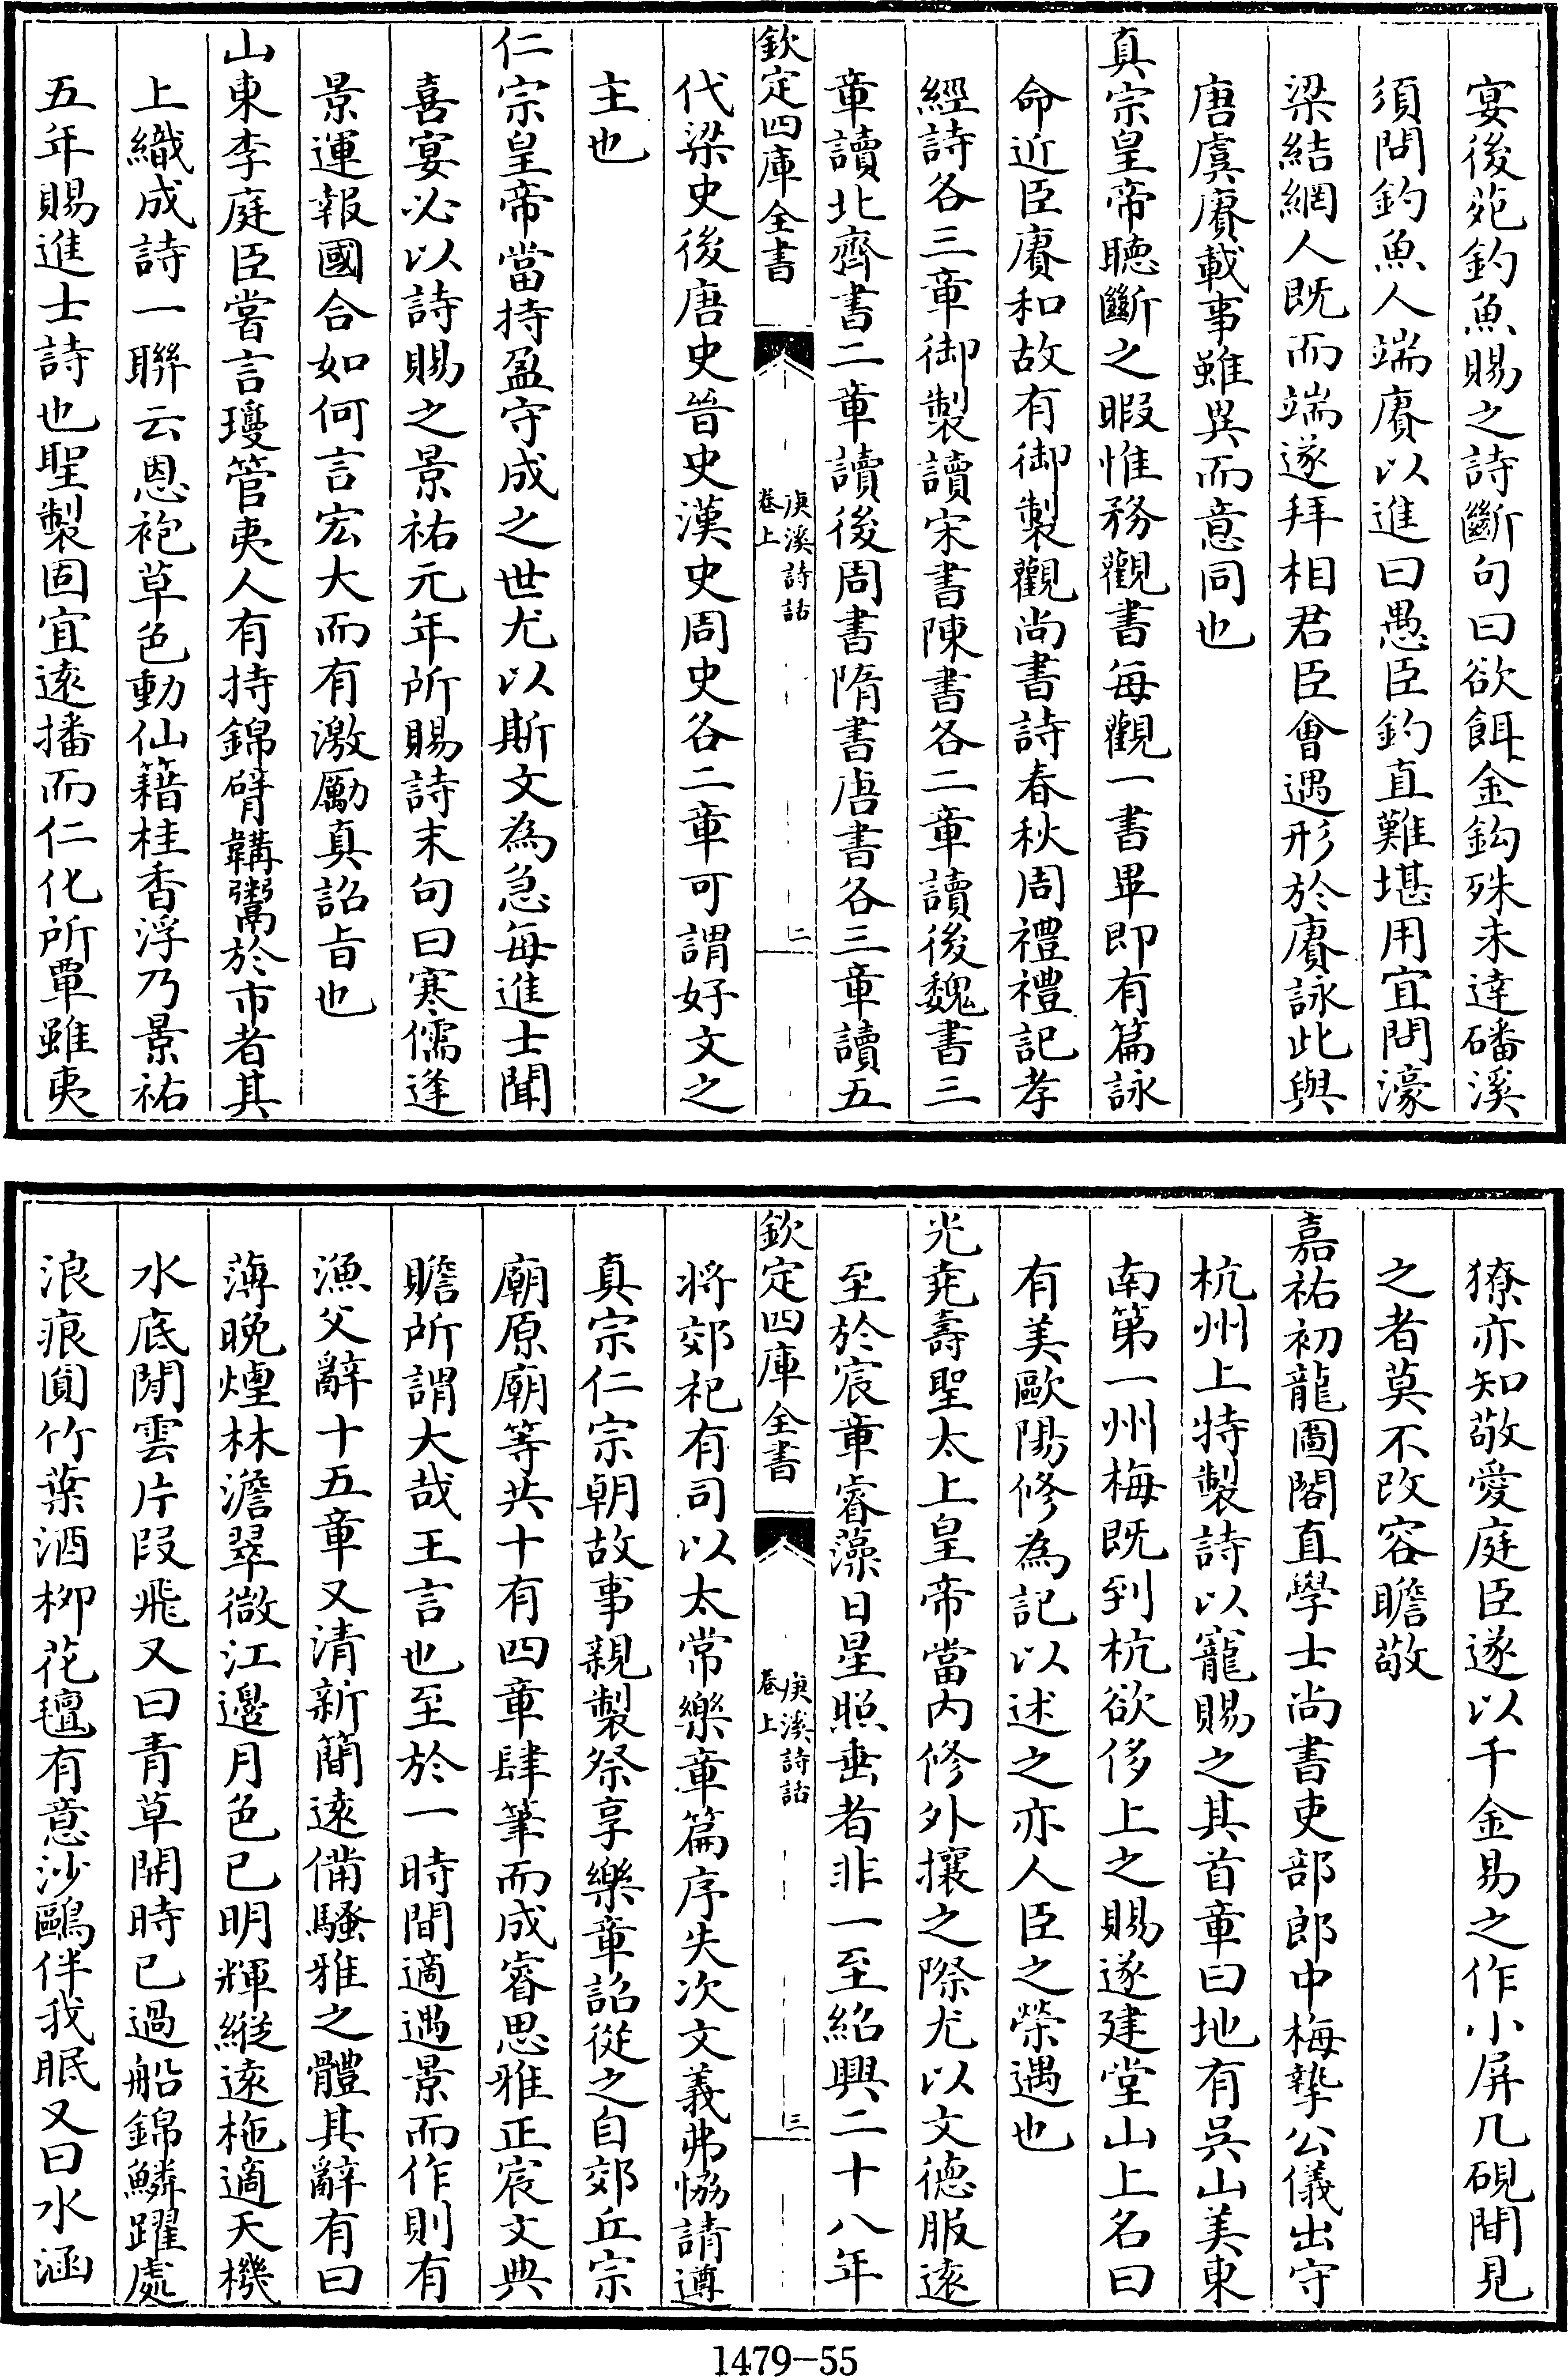 宴後苑釣魚賜之詩斷句曰欲餌金鈎殊未達磻溪
須問釣魚人端賡以進曰愚臣釣直難堪用宜問濠
梁結網人既而端遂拜相君臣會遇形於賡詠此與
唐虞賡載事雖異而意同也
真宗皇帝聽斷之暇惟務觀書每觀一書畢即有篇詠
命近臣賡和故有御製觀尚書詩春秋周禮禮記孝
經詩各三章御製讀宋書陳書各二章讀後魏書三
章讀北齊書二章讀後周書隋書唐書各三章讀五
欽定四庫全書
庚溪詩話
卷上
二
代梁史後唐史晉史漢史周史各二章可謂好文之
主也
仁宗皇帝當持盈守成之世尤以斯文為急每進士聞
喜宴必以詩賜之景祐元年所賜詩末句曰寒儒逢
景運報國合如何言宏大而有激勵真詔旨也
山東李庭臣嘗言瓊管夷人有持錦臂韝鬻於市者其
上織成詩一聯云恩袍草色動仙籍桂香浮乃景祐
五年賜進士詩也聖製固宜遠播而仁化所覃雖夷
獠亦知敬愛庭臣遂以千金易之作小屏几硯間見
之者莫不改容瞻敬
嘉祐初龍圖閣直學士尚書吏部郎中梅摯公儀出守
杭州上特製詩以寵賜之其首章曰地有吳山美東
南第一州梅既到杭欲侈上之賜遂建堂山上名曰
有美歐陽修為記以述之亦人臣之榮遇也
光堯壽聖太上皇帝當內修外攘之際尤以文德服遠
至於宸章睿藻日星照垂者非一至紹興二十八年
欽定四庫全書
庚溪詩話
卷上
三
將郊祀有司以太常樂章篇序失次文義弗協請遵
真宗仁宗朝故事親製祭享樂章詔從之自郊丘宗
廟原廟等共十有四章肆筆而成睿思雅正宸文典
贍所謂大哉王言也至於一時間適遇景而作則有
漁父辭十五章又清新簡遠備騷雅之體其辭有曰
薄晚煙林澹翠微江邊月色已明輝縱遠柂適天機
水底閒雲片段飛又曰青草開時已過船錦鱗躍處
浪痕圓竹葉酒柳花氊有意沙鷗伴我眠又曰水涵
1479-55